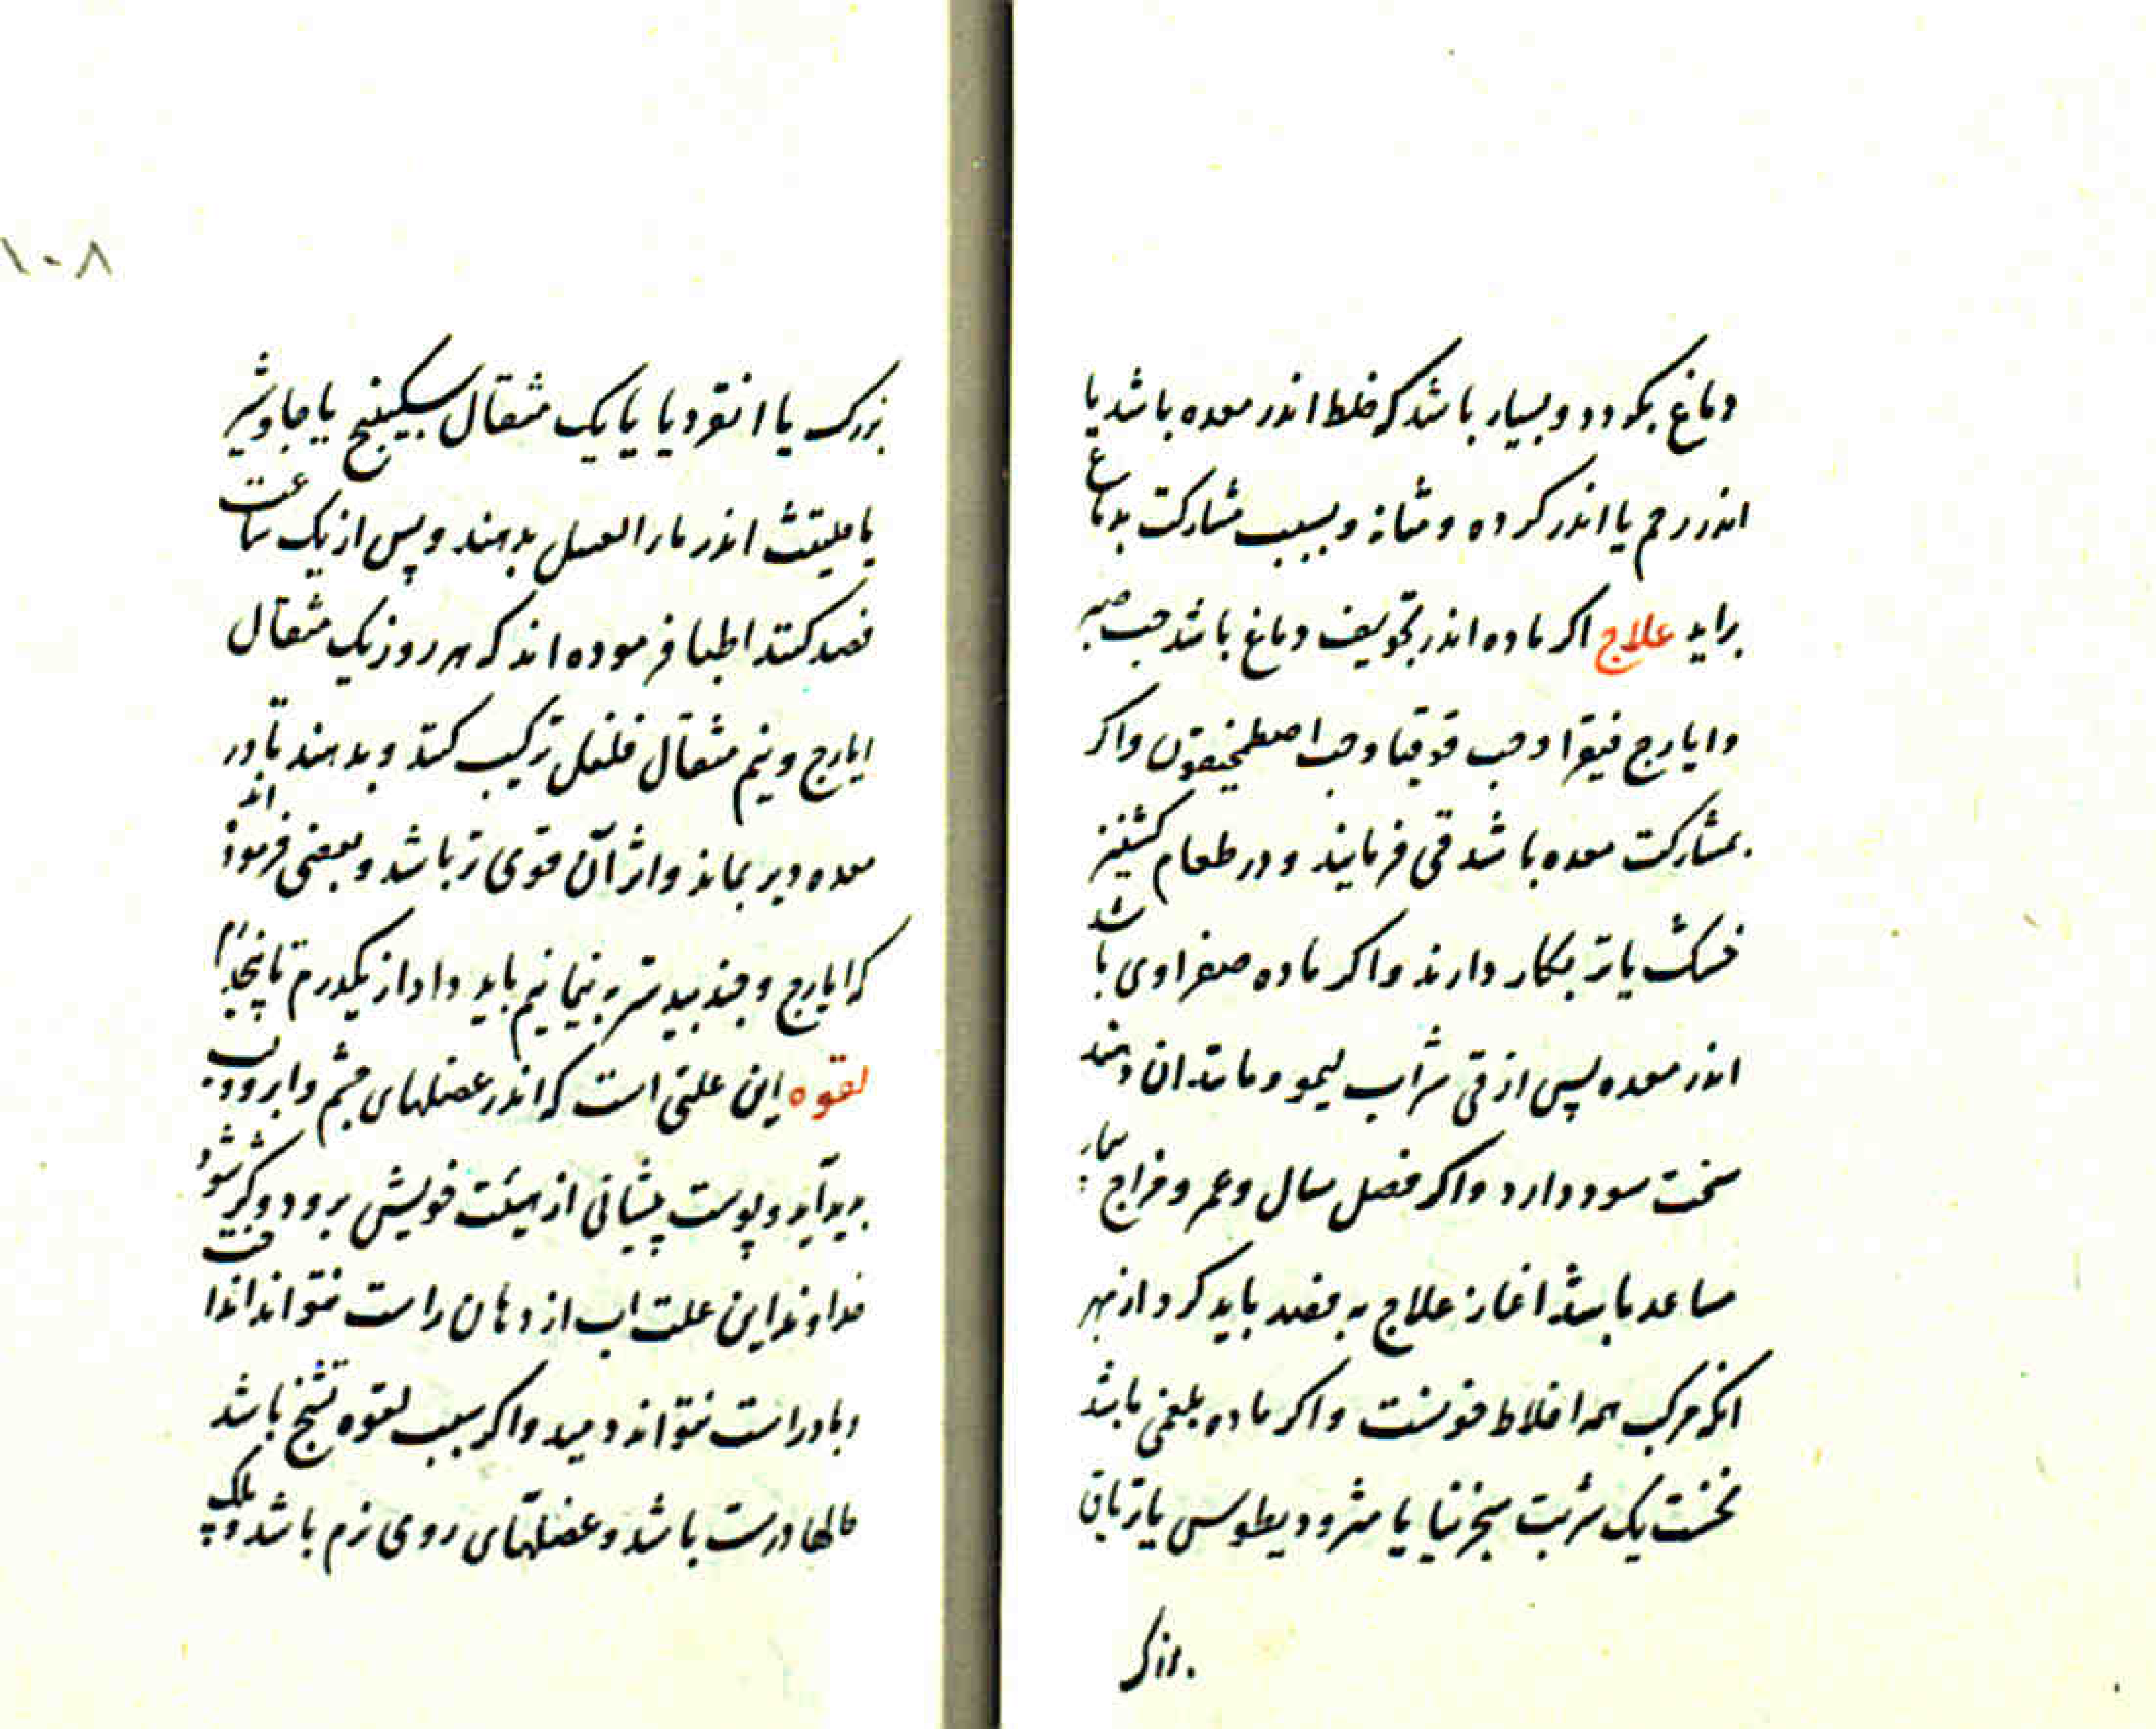 دماغ بکودد و بسیار باشد که خلط اندر معده باشد یا
اندر رحم یا اندر کرده و مثانه و بسبب مشارکت بدماغ
براید علاج اکر ماده اندر تجویف دماغ باشد حب صبر
و ایارج فیقرا و حب قوقیا و حب اصطمخیقون و اکر
بمشارکت معده باشد قی فرمایند و در طعام کشنیز
خشک یا تر بکار دارند و اکر ماده صفراوی باشد
اندر معده پس از قی شراب لیمو و مانند ان دهند
سخت سود دارد و اکر فصل سال و عمر و مزاج بیمار
مساعد باشد اغاز علاج به فصد باید کرد از بهر
انکه مرکب همه اخلاط خونست و اکر ماده بلغمی باشد
نخست یک شربت سجزنیا یا مثرودیطوس یا تریاق
بزرک
۱۰۸
بزرک یا انقردیا یا یک مثقال سکبینج یا جاوشیر
یا حلتیث اندر ماء العسل بدهند و پس از یک ساعت
فصد کنند اطبا فرموده اند که هر روز یک مثقال
ایارج و نیم مثقال فلفل ترکیب کنند و بدهند تا در
معده دیر بماند و اثر آن قوی تر باشد و بعضی فرموده اند
که ایارج و جندبیدستر به نیمانیم باید داد از یکدرم تا پنجدرم
لقوه این علتی است که اندر عضلهای چشم و ابرو و لب
پدید آید و پوست پیشانی از هیئت خویش برود و کژ شود
خداوند این علت اب از دهان راست نتواند انداخت
و باد راست نتواند دمید و اکر سبب لقوه تشنج باشد
حالها درست باشد و عضلهای روی نرم باشد و پلک